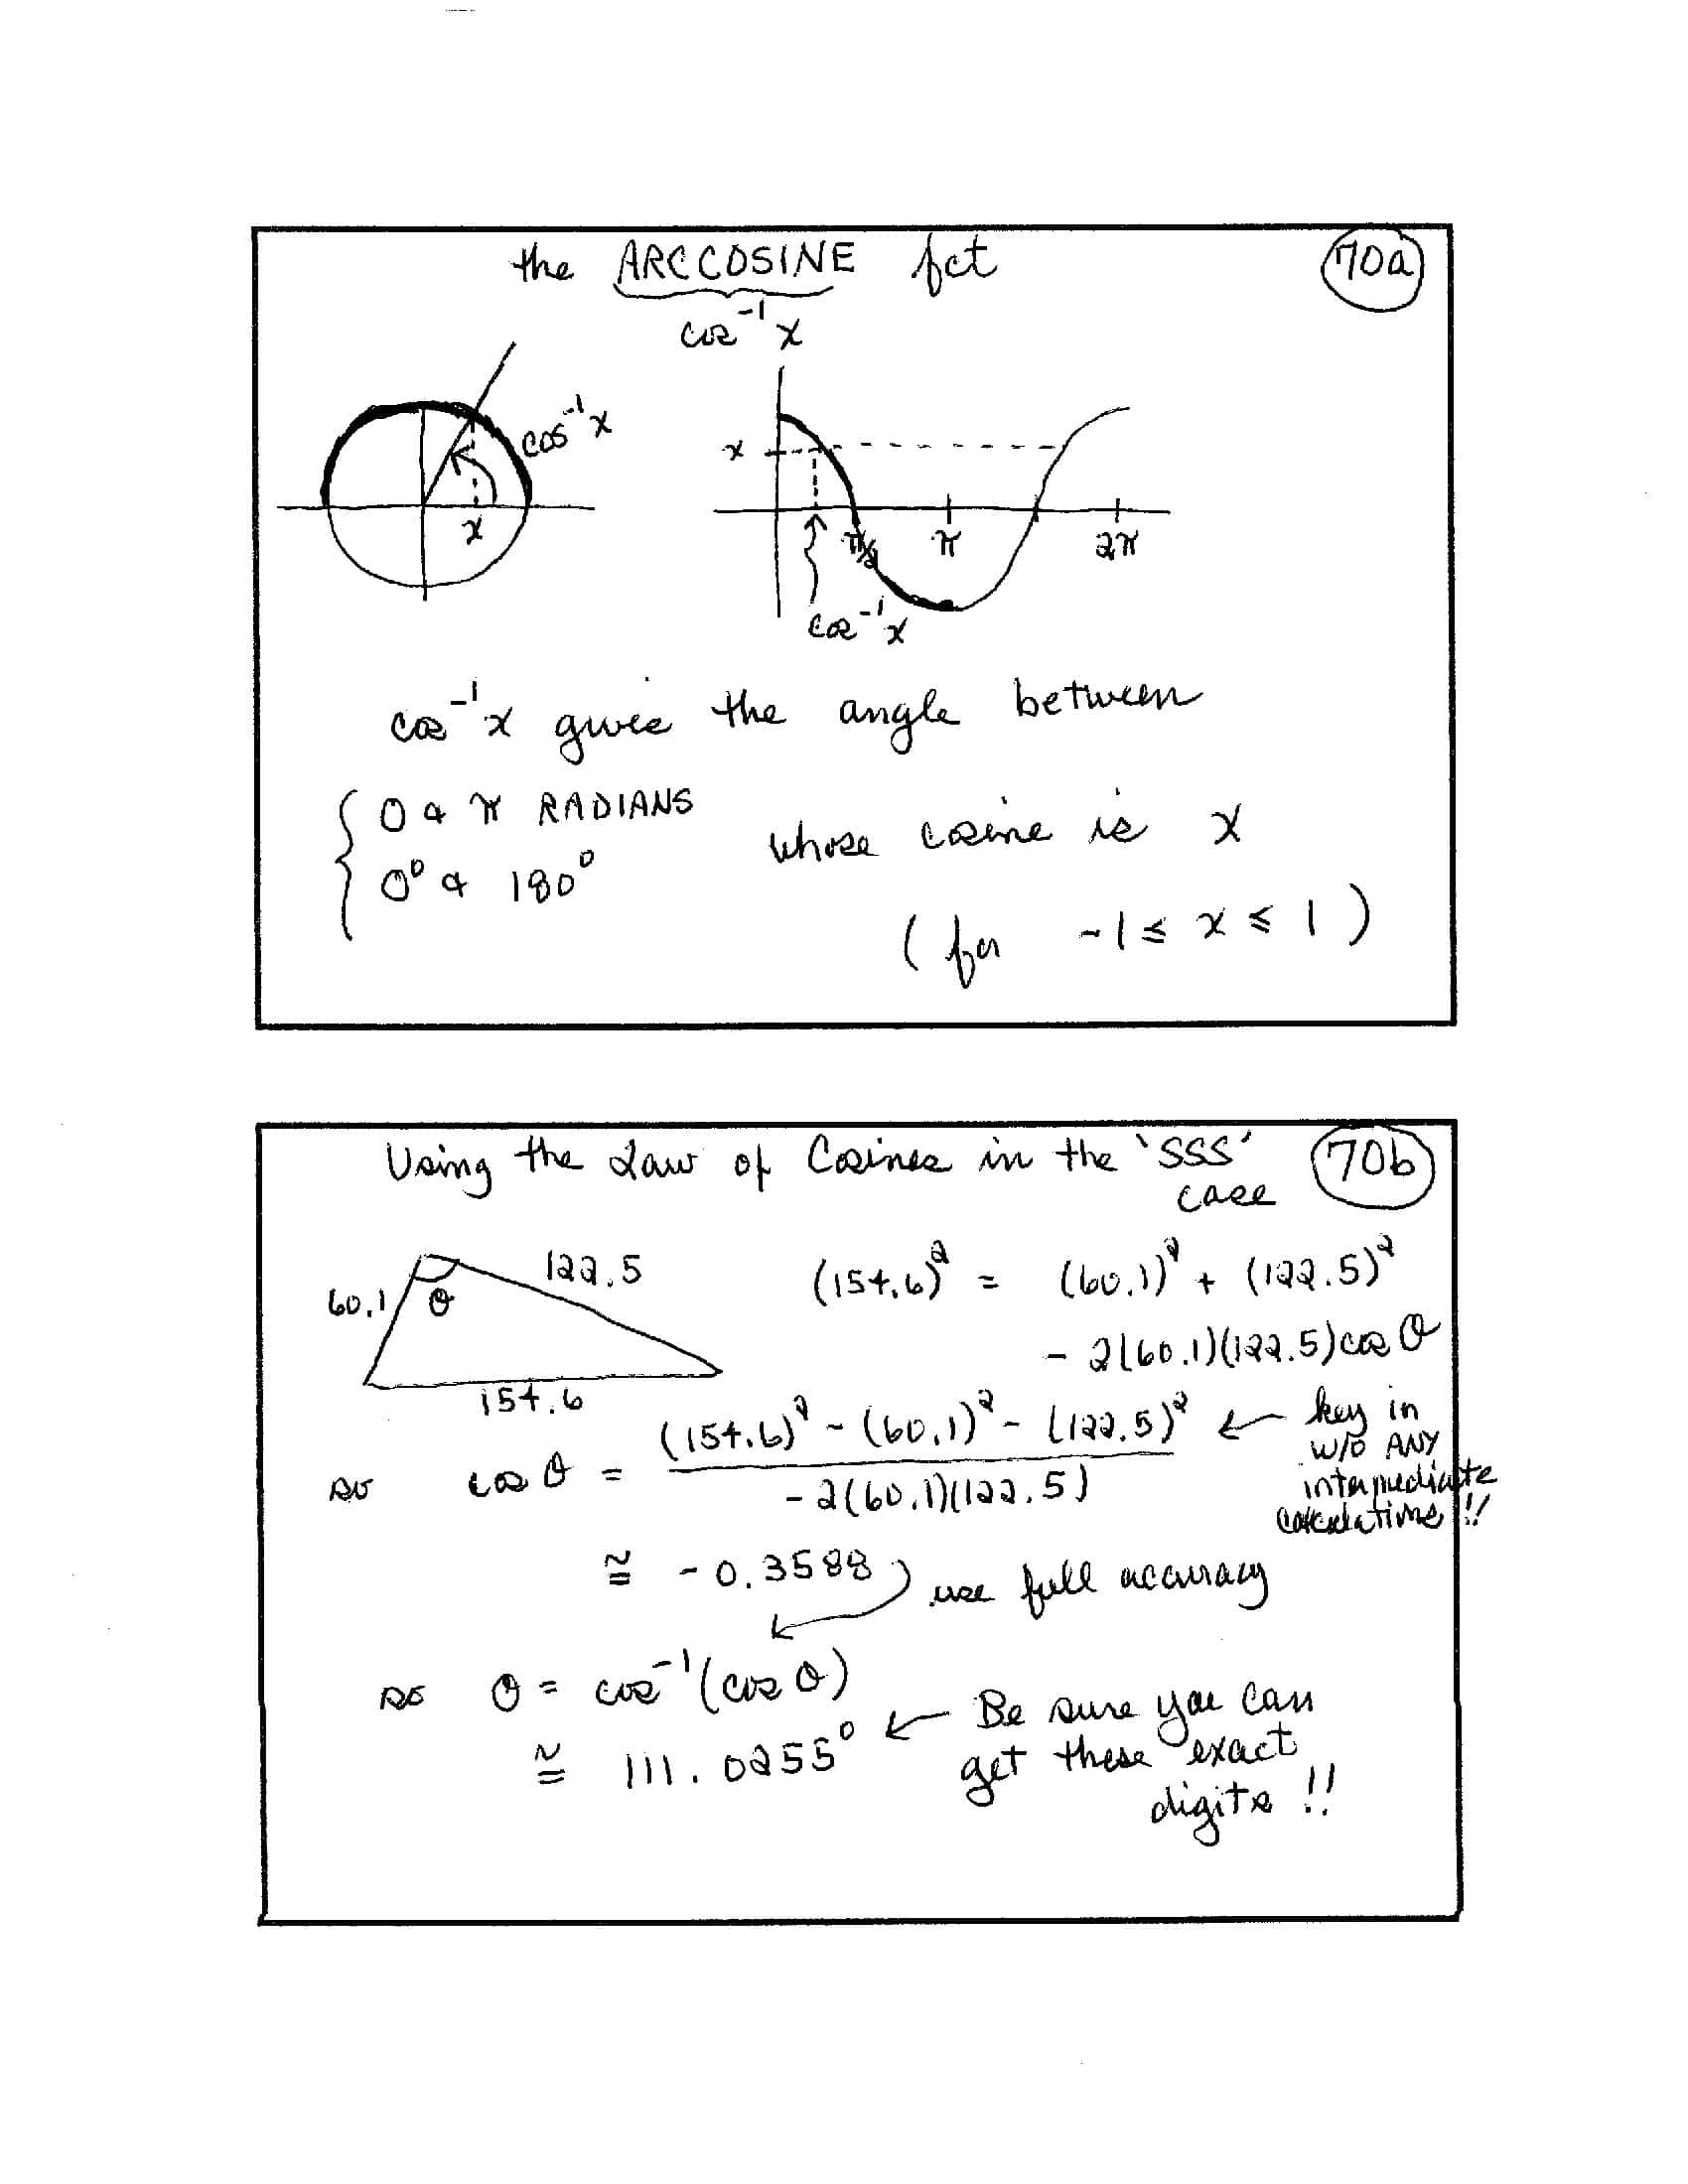 the ARCCOSINE fct
70a
cos⁻¹x
cos⁻¹x
x
x
π/2
π
2π
cos⁻¹x
cos⁻¹x gives the angle between
0 & π RADIANS
0° & 180°
whose cosine is x
(for -1 ≤ x ≤ 1)
Using the Law of Cosines in the 'SSS'
case
70b
60.1
θ
122.5
154.6
(154.6)² = (60.1)² + (122.5)²
- 2(60.1)(122.5)cos θ
so cos θ = (154.6)² - (60.1)² - (122.5)²
-2(60.1)(122.5)
← key in
w/o ANY
intermediate
calculations!!
≅ -0.3588
use full accuracy
so θ = cos⁻¹(cos θ)
≅ 111.0255°
← Be sure you can
get these exact
digits!!